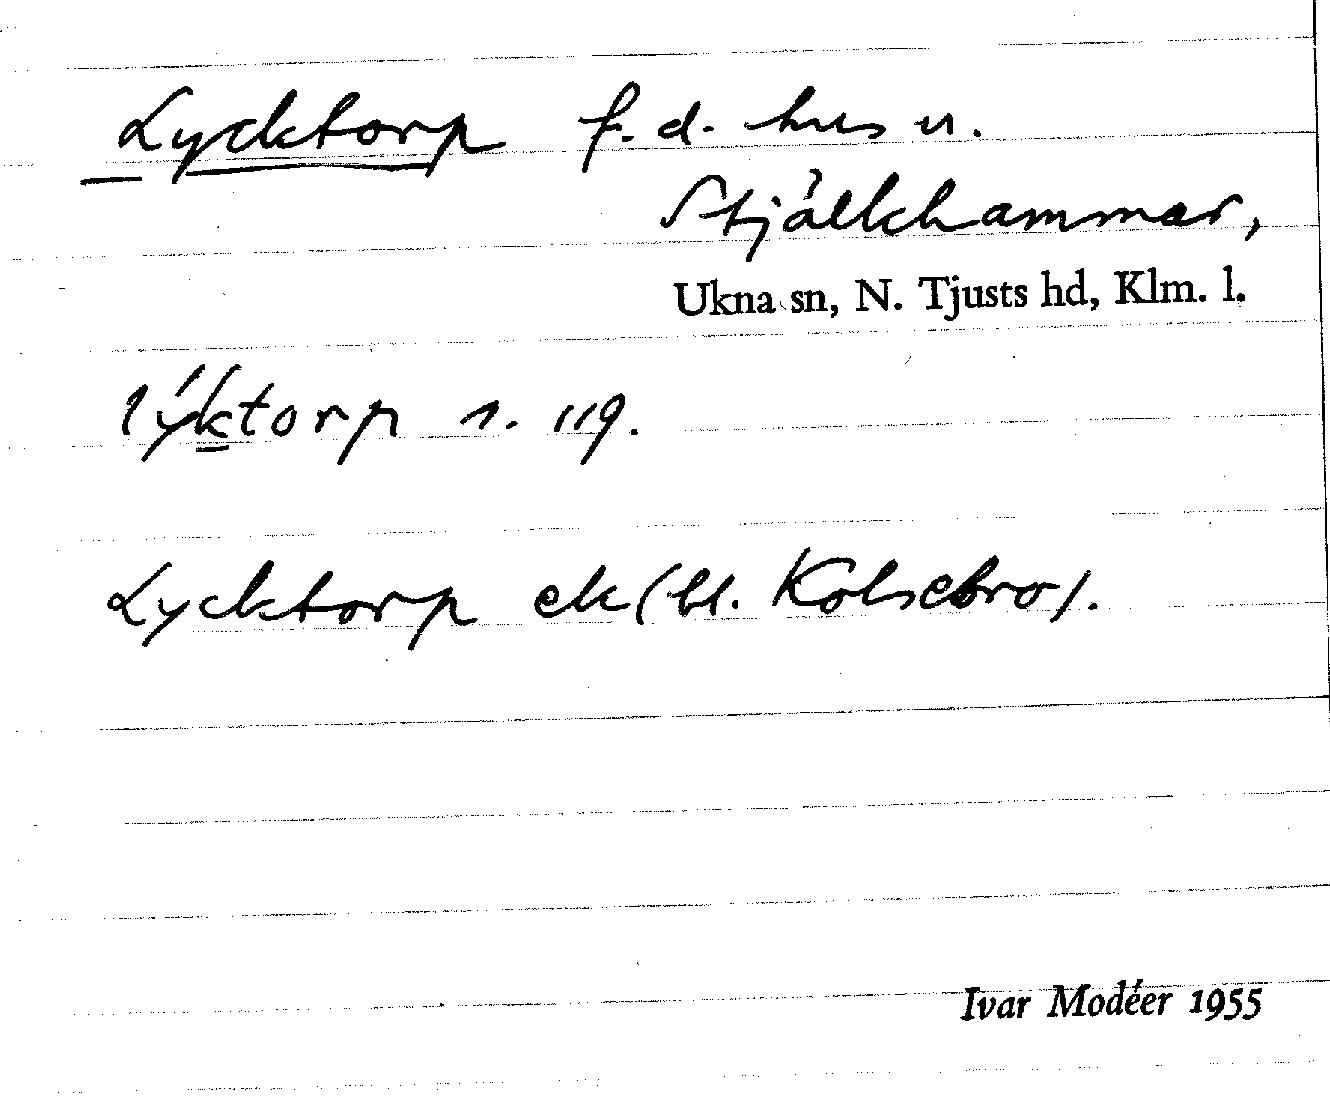 Lycktorp f. d. hus u.
Stjälkhammar,
Ukna sn, N. Tjusts hd, Klm. l.
lýktorp s. 119.
Lycktorp ek (bl. Kolsebro).
Ivar Modéer 1955